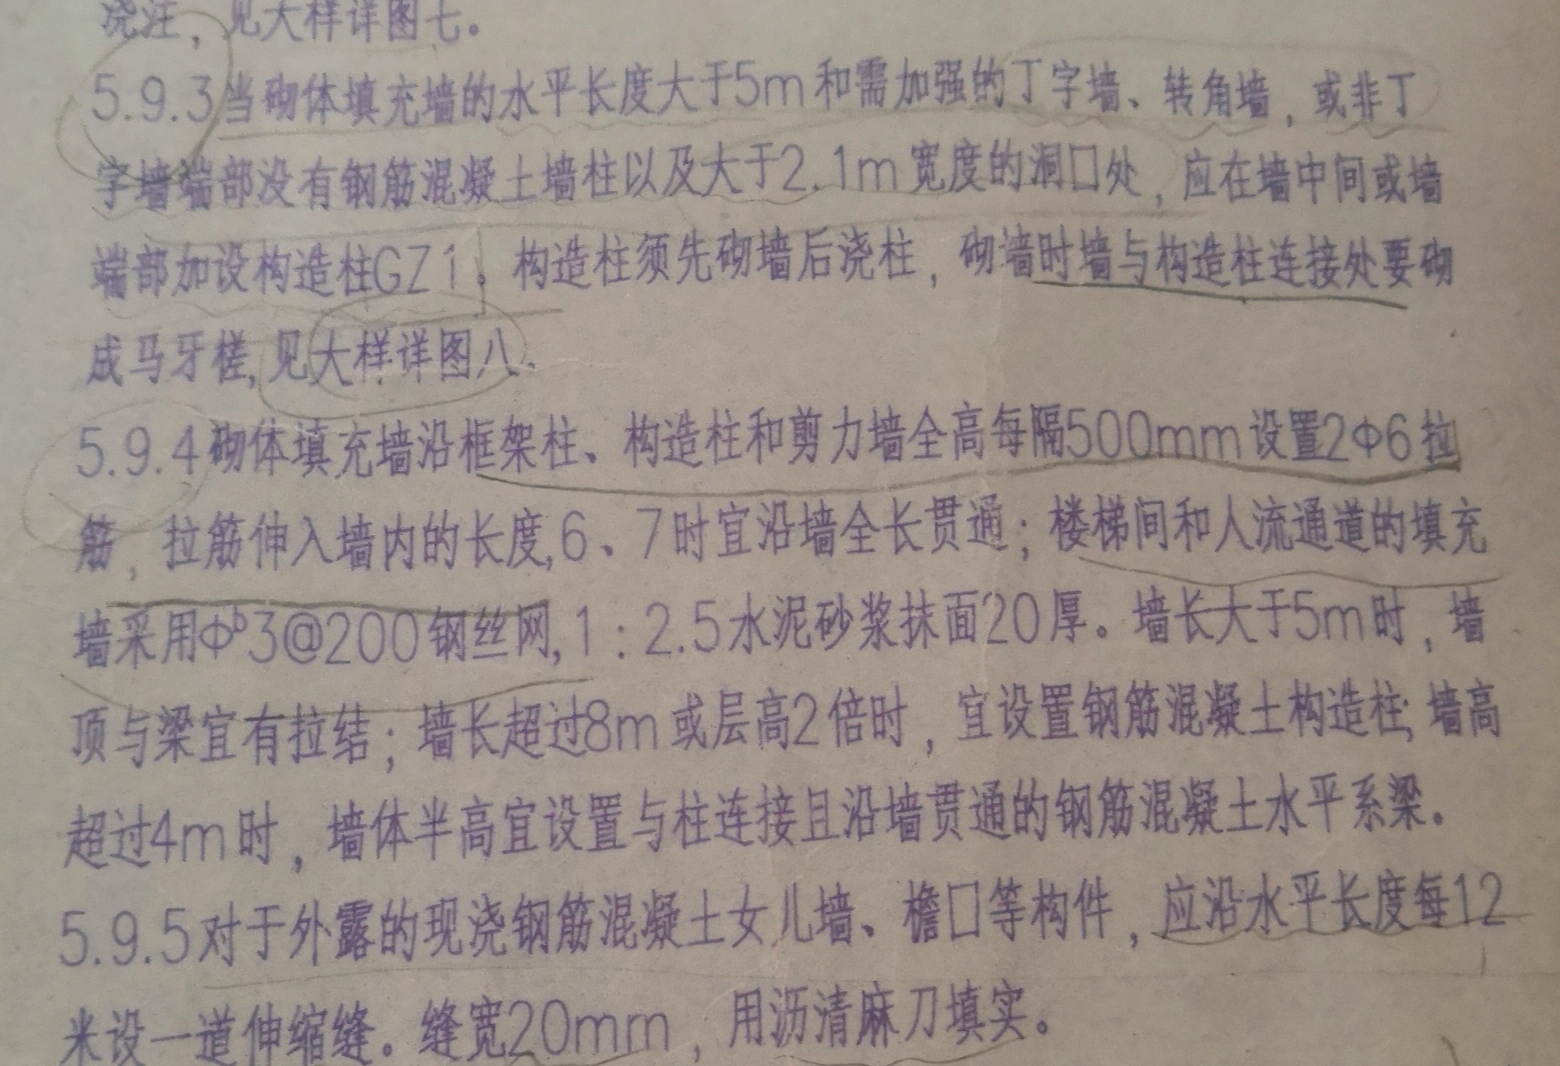 浇注，见大样详图七。
5.9.3当砌体填充墙的水平长度大于5m和需加强的丁字墙、转角墙，或非丁
字墙端部没有钢筋混凝土墙柱以及大于2.1m宽度的洞口处，应在墙中间或墙
端部加设构造柱GZ1。构造柱须先砌墙后浇柱，砌墙时墙与构造柱连接处要砌
成马牙槎,见大样详图八、
5.9.4砌体填充墙沿框架柱、构造柱和剪力墙全高每隔500mm设置2Φ6拉
筋，拉筋伸入墙内的长度,6、7时宜沿墙全长贯通；楼梯间和人流通道的填充
墙采用Φᵇ3@200钢丝网,1：2.5水泥砂浆抹面20厚。墙长大于5m时，墙
顶与梁宜有拉结；墙长超过8m或层高2倍时，宜设置钢筋混凝土构造柱;墙高
超过4m时，墙体半高宜设置与柱连接且沿墙贯通的钢筋混凝土水平系梁。
5.9.5对于外露的现浇钢筋混凝土女儿墙、檐口等构件，应沿水平长度每12
米设一道伸缩缝。缝宽20mm，用沥清麻刀填实。